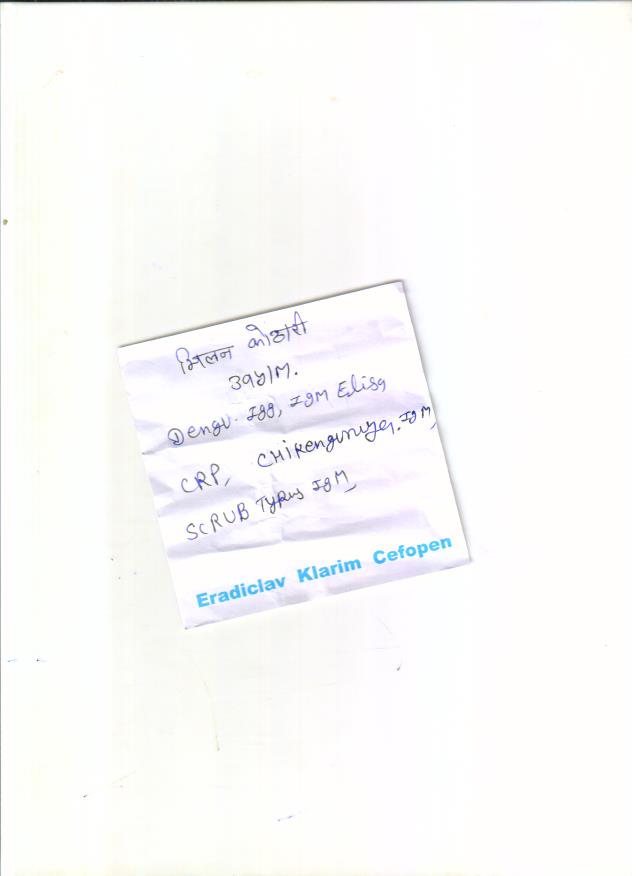 मिलन कोठारी
39y/M.
Dengu. Igg, IgM Elisa
CRP, CHikengunuya. IgM,
SCRUB Typus IgM,
Eradiclav Klarim Cefopen